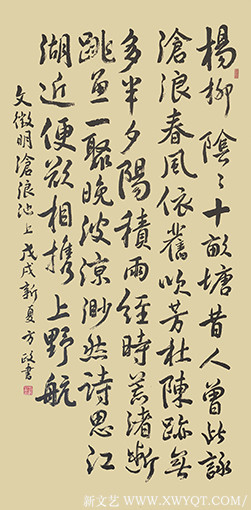 楊柳陰〻十畝塘昔人曾此詠
滄浪春風依舊吹芳杜陳跡無
多半夕陽積雨經時荒渚斷
跳魚一聚晚波涼渺然詩思江
湖近便欲相携上野航
文徵明滄浪池上戊戌新夏方政書
新文艺 WWW.XWYQT.COM